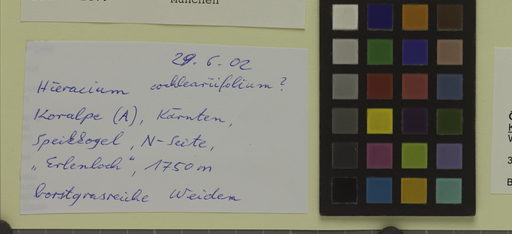 München
29.6.02
Hieracium cochleariifolium?
Koralpe (A), Kärnten,
Speikkogel, N-Seite,
„Erlenloch", 1750m
borstgrasreiche Weiden